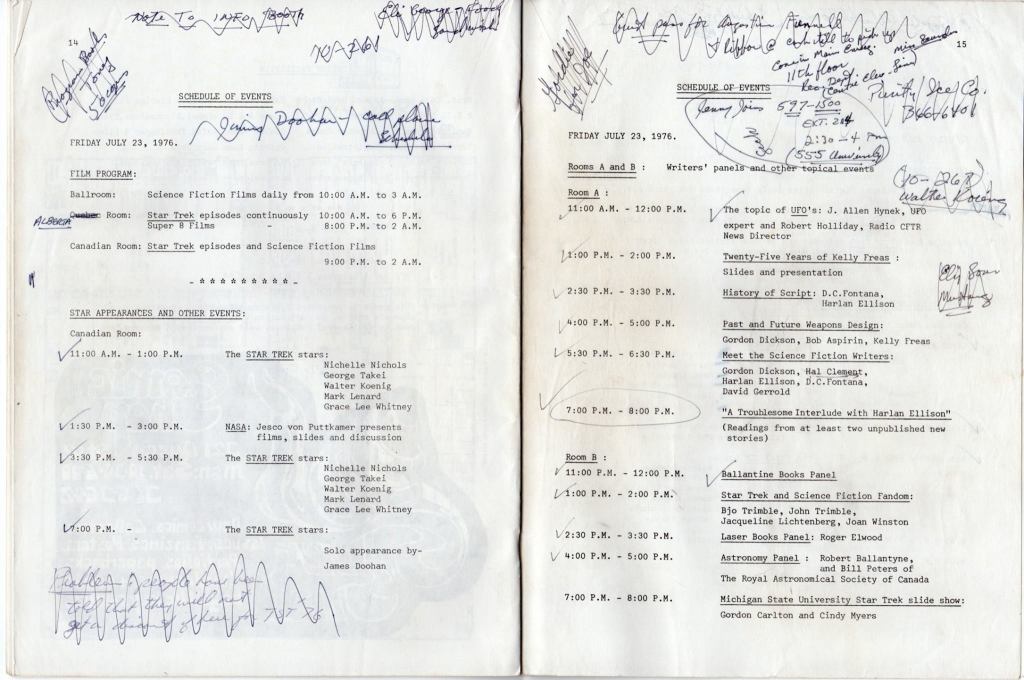 Note To INFO BOOTH
14
SCHEDULE OF EVENTS
Doohan
FRIDAY JULY 23, 1976.
FILM PROGRAM:
Ballroom: Science Fiction Films daily from 10:00 A.M. to 3 A.M.
ALBERTA
Quebec Room: Star Trek episodes continuously 10:00 A.M. to 6 P.M.
Super 8 Films - 8:00 P.M. to 2 A.M.
Canadian Room: Star Trek episodes and Science Fiction Films
9:00 P.M. to 2 A.M.
- * * * * * * * * * -
STAR APPEARANCES AND OTHER EVENTS:
Canadian Room:
11:00 A.M. - 1:00 P.M. The STAR TREK stars:
Nichelle Nichols
George Takei
Walter Koenig
Mark Lenard
Grace Lee Whitney
1:30 P.M. - 3:00 P.M. NASA: Jesco von Puttkamer presents
films, slides and discussion
3:30 P.M. - 5:30 P.M. The STAR TREK stars:
Nichelle Nichols
George Takei
Walter Koenig
Mark Lenard
Grace Lee Whitney
7:00 P.M. - The STAR TREK stars:
Solo appearance by-
James Doohan
Problem - people have been
told that they will not
get a
15
11th floor
SCHEDULE OF EVENTS
Purity Ice Co.
366-6401
597-1500
EXT. 204
2:30 - 4 pm
(555 University)
FRIDAY JULY 23, 1976.
Rooms A and B : Writers' panels and other topical events
(10-1268)
Walter Koenig
Room A :
11:00 A.M. - 12:00 P.M. The topic of UFO's: J. Allen Hynek, UFO
expert and Robert Holliday, Radio CFTR
News Director
1:00 P.M. - 2:00 P.M. Twenty-Five Years of Kelly Freas :
Slides and presentation
2:30 P.M. - 3:30 P.M. History of Script: D.C.Fontana,
Harlan Ellison
4:00 P.M. - 5:00 P.M. Past and Future Weapons Design:
Gordon Dickson, Bob Aspirin, Kelly Freas
5:30 P.M. - 6:30 P.M. Meet the Science Fiction Writers:
Gordon Dickson, Hal Clement,
Harlan Ellison, D.C.Fontana,
David Gerrold
7:00 P.M. - 8:00 P.M. "A Troublesome Interlude with Harlan Ellison"
(Readings from at least two unpublished new
stories)
Room B :
11:00 P.M. - 12:00 P.M. Ballantine Books Panel
1:00 P.M. - 2:00 P.M. Star Trek and Science Fiction Fandom:
Bjo Trimble, John Trimble,
Jacqueline Lichtenberg, Joan Winston
2:30 P.M. - 3:30 P.M. Laser Books Panel: Roger Elwood
4:00 P.M. - 5:00 P.M. Astronomy Panel : Robert Ballantyne,
and Bill Peters of
The Royal Astronomical Society of Canada
7:00 P.M. - 8:00 P.M. Michigan State University Star Trek slide show:
Gordon Carlton and Cindy Myers